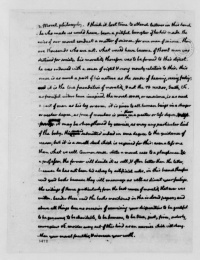 4. Moral philosophy. I think it lost time to attend lectures in this branch.
he who made us would have been a pitiful bungler if he had made the
rules of our moral conduct a matter of science. for one man of science, there
are thousands who are not. what would have become of them? man was
destined for society. his morality therefore was to be formed to this object.
he was endowed with a sense of right & wrong merely relative to this. this
sense is as much a part of his nature as the sense of hearing, seeing, feeling;
it is the true foundation of morality, & not the truth, &c.
as fanciful writers have imagined. the moral sense, or conscience, is as much
a part of man as his leg or arm. it is given to all human beings in a stronger
or weaker degree, as force of members is given them in a greater or less degree.
it may be strengthened by exercise, as may any particular limb
of the body. this sense is submitted indeed in some degree to the guidance of
reason; but it is a small stock which is required for this: even a less one
than what we call Common sense. state a moral case to a ploughman &
a professor. the former will decide it as well, & often better than the latter,
because he has not been led astray by artificial rules. in this branch therefore
read good books because they will encourage as well as direct your feelings.
the writings of Sterne particularly form the best course of morality that ever was
written. besides these read the books mentioned in the inclosed paper; and
above all things lose no occasion of exercising your dispositions to be grateful,
to be generous, to be charitable, to be humane, to be true, just, firm, orderly,
couragious &c. consider every act of this kind as an exercise which will strengthen
your moral faculties, & increase your worth.